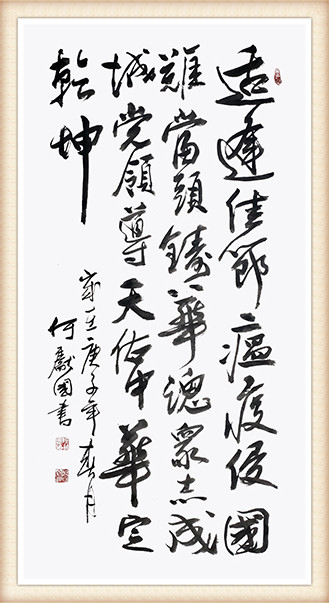 适逢佳節瘟疫侵國
難當頭鑄華魂眾志成
城党領導天佑中華定
乾坤
歲在庚子年春月
何獻國書